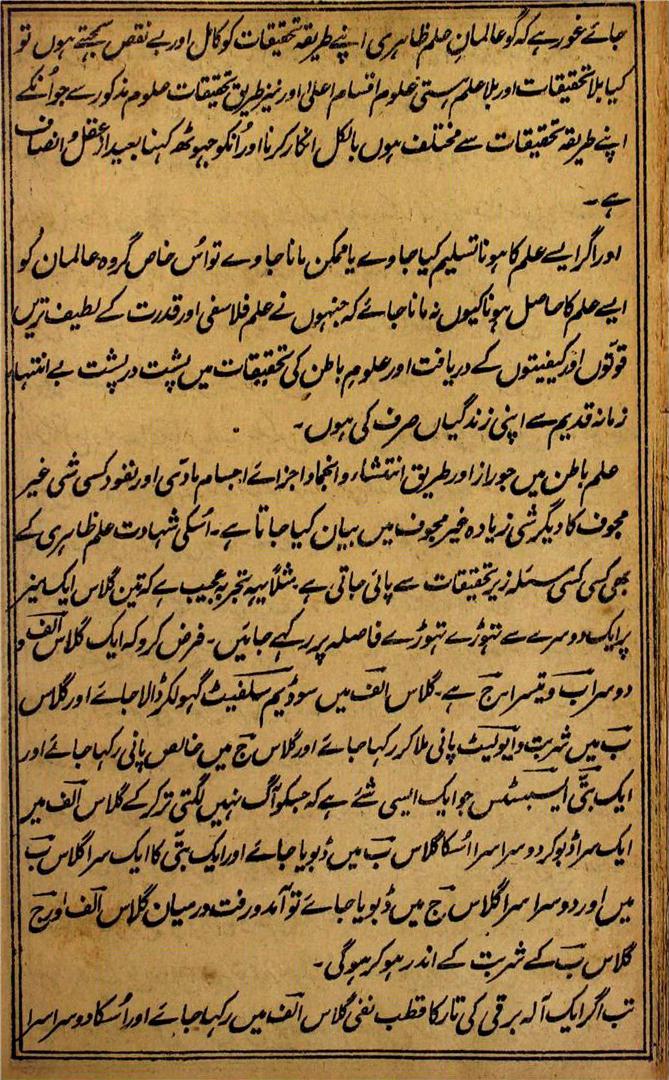 جائے غور ہے کہ گو عالمانِ علم ظاہری اپنے طریقہ تحقیقات کو کامل اور بے نقص سمجتے ہوں تو
کیا بلا تحقیقات اور بلا علم ہستیِ علوم اقسام اعلیٰ اور نیز طریق تحقیقات علوم مذکور سے جو اُنکے
اپنے طریقہ تحقیقات سے مختلف ہوں بالکل انکار کرنا اور اُنکو جہوٹھ کہنا بعید از عقل و انصاف
ہے۔
اور اگر ایسے علم کا ہونا تسلیم کیا جاوے یا ممکن مانا جاوے تو اُس خاص گروہ عالمان کو
ایسے علم کا حاصل ہونا کیوں نہ مانا جائے کہ جنہوں نے علم فلاسفی اور قدرت کے لطیف تریں
قوتوں اور کیفیتوں کے دریافت اور علومِ باطن کی تحقیقات میں پشت در پشت بے انتہا
زمانہ قدیم سے اپنی زندگیاں صرف کی ہوں۔
علم باطن میں جو راز اور طریق انتشاء و انجماد اجزائے اجسام مادّی اور نفوذ کسی شی غیر
مجوف کا دیگر شی زیادہ غیر مجوف میں بیان کیا جاتا ہے۔ اُسکی شہادت علم ظاہری کے
بھی کسی کسی مسئلہ زیر تحقیقات سے پائی جاتی ہے۔ مثلاً یہہ تجربہ عجیب ہے کہ تین گلاس ایک میز
پر ایک دوسرے سے تہوڑے تہوڑے فاصلہ پر رکہے جائیں۔ فرض کرو کہ ایک گلاس الف و
دوسرا ب و تیسرا ج ہے۔ گلاس الف میں سوڈیم سلفیٹ گہولکر ڈالا جائے اور گلاس
ب میں شربت وایولیٹ پانی ملا کر رکہا جائے اور گلاس ج میں خالص پانی رکہا جائے اور
ایک بتّی ایسبسٹس جو ایک ایسی شئے ہے کہ جسکو آگ نہیں لگتی تر کر کے گلاس الف میں
ایک سرا ڈبو کر دوسرا سرا اُسکا گلاس ب میں ڈبویا جائے اور ایک بتّی کا ایک سرا گلاس ب
میں اور دوسرا سرا گلاس ج میں ڈبویا جائے تو آمد و رفت درمیان گلاس الف اور ج
گلاس ب کے شربت کے اندر ہو کر ہو گی۔
تب اگر ایک آلہ برقی کی تار کا قطب نفی گلاس الف میں رکہا جائے اور اُسکا دوسرا سرا